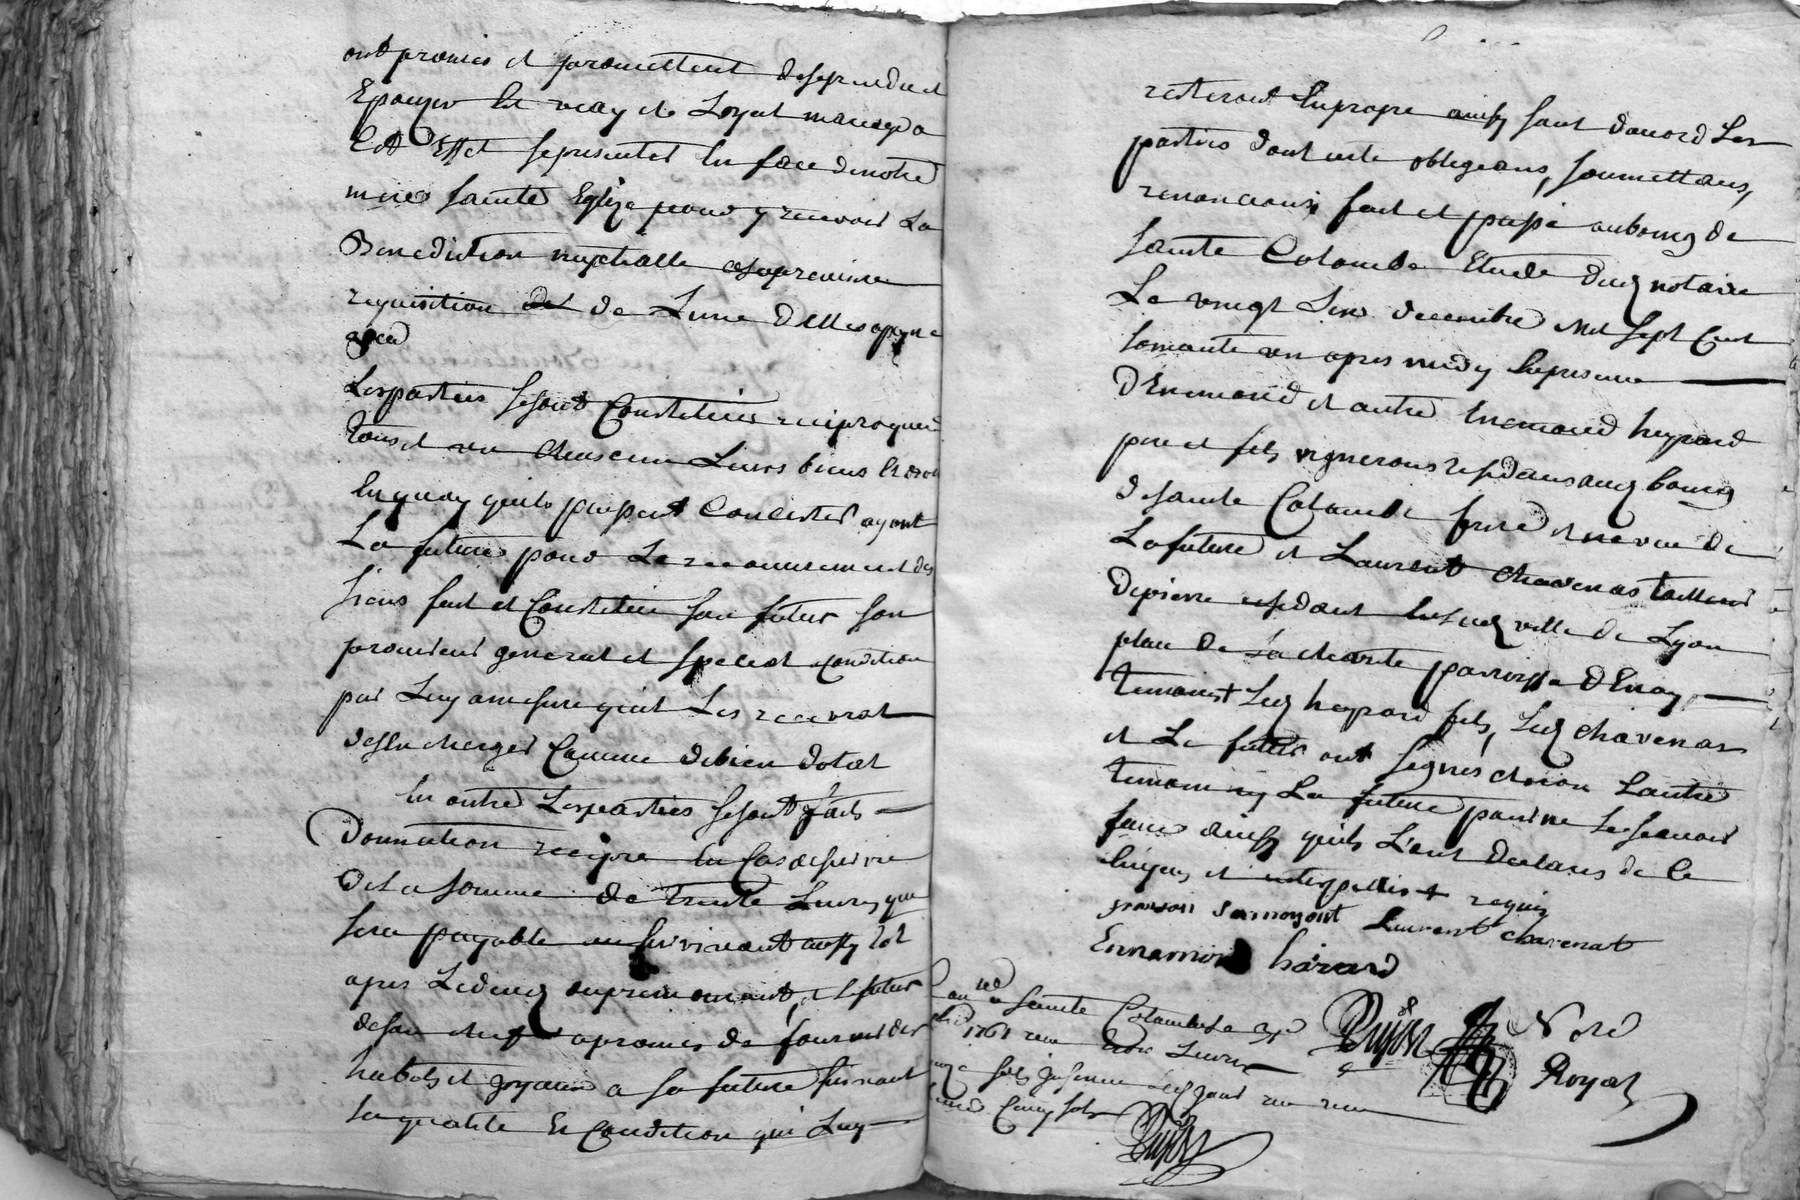 ont promis et promettent de se prendre et
Epouzer En vray et Loyal mariage a
Cet Effet se presenter En face de notre
mere sainte Eglize pour y recevoir La
Benediction nuptialle a la premiere
requisition de Lune Delles a peyne
Les parties se sont Constituées reciproquem
tous et un chascun Leurs biens Et droits
En quoy quils puissent Concister ayant
La future pour Le recouvrement des
siens fait et Constitué son futur son
procureur general et special condition
par Luy a mesure quil Les recevrat
desen charger Comme de bien dotal
En outre Les parties se sont faits
Donnation recipre En Cas de survie
De La somme de trente Livres qui
sera payable au survivant aussy tot
apres Le deces du premourant, et le futur
de son chef a promis de fournir des
habits et joyaux a sa future suivant
sa qualité Et Condition qui Luy
resteront En propre ainsy sont d'acord Les
parties dont acte obligeans, soumettans,
renoncans, fait et passé au bourg de
sainte Colombe Etude dud notaire
Le vingt six decembre Mil sept Cent
soixante un apres midy En presence
D'Enemond et autre Enemond heyrard
pere et fils vignerons residans aud bourg
de sainte Colombe frere et neveu de
La future et Laurent chavenas tailleur
De pierre residant En lad ville de Lyon
place de La charité parroisse D'Enay
temoins Led heyrard fils, Led chavenas
et Le futur ont signés et non Lautre
temoin ny La future pour ne Le scavoir
faire ainsy quils L'ont declarés de Ce
Enquis et interpellés + requis
Laurent chavenat
Ennamon hérard
sainte Colombe
1761 reçu trois Livres
Dujon Nore
Royal
Dujon